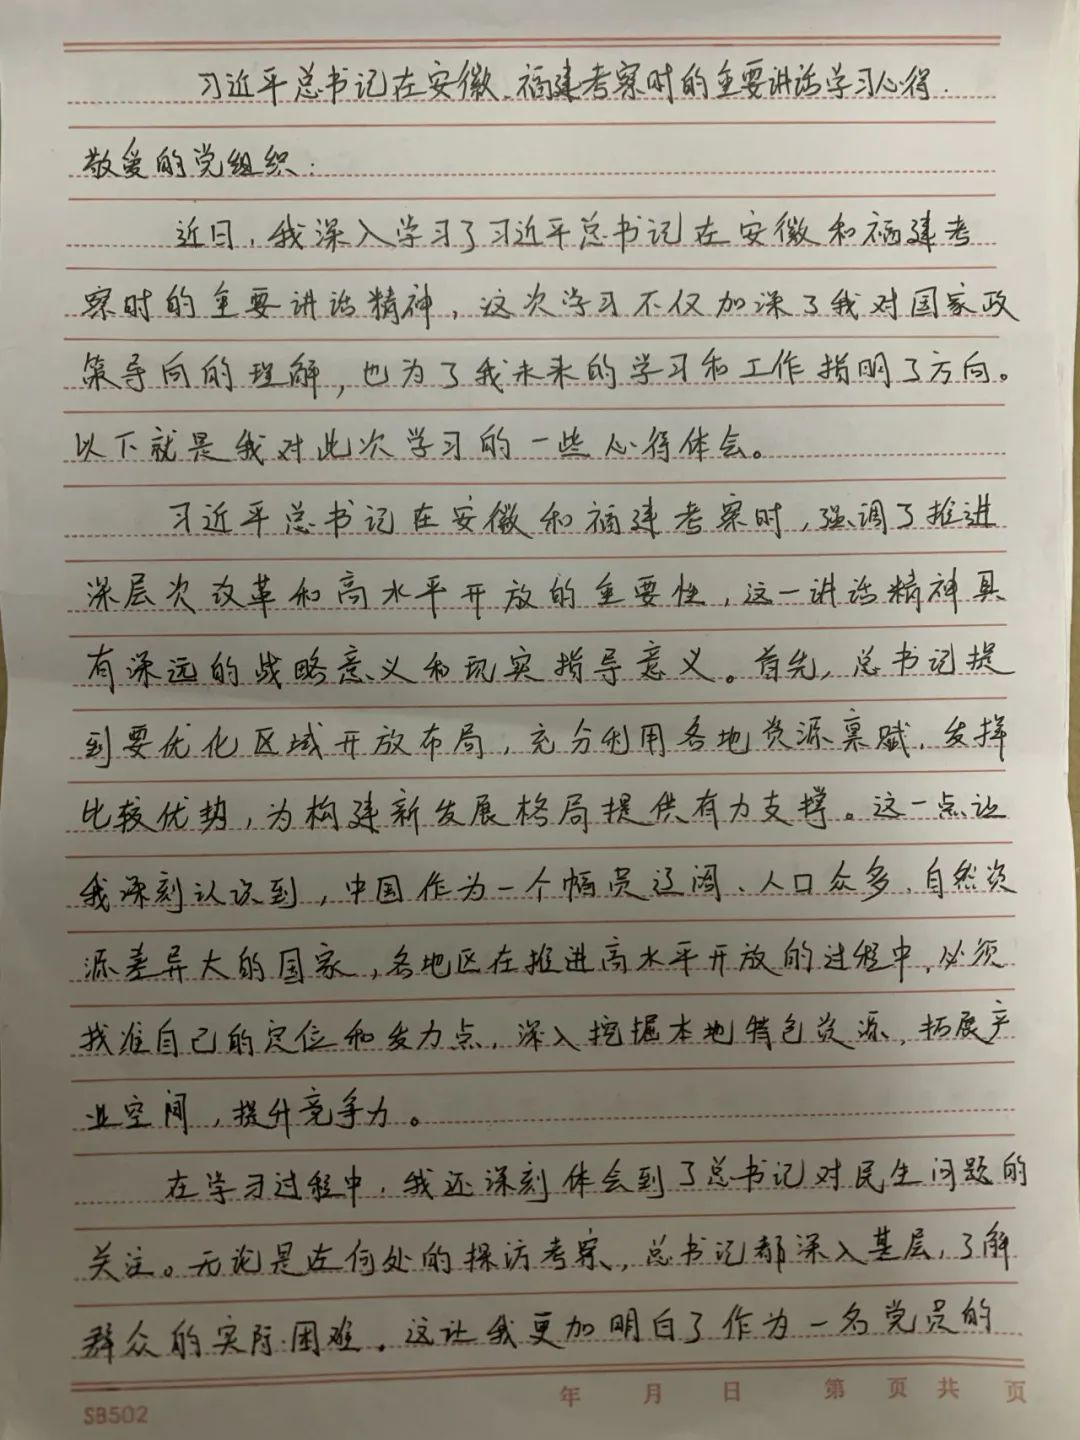 习近平总书记在安徽、福建考察时的主要讲话学习心得.
敬爱的党组织:
近日,我深入学习了习近平总书记在安徽和福建考
察时的主要讲话精神,这次学习不仅加深了我对国家政
策导向的理解,也为了我未来的学习和工作指明了方向。
以下就是我对此次学习的一些心得体会。
习近平总书记在安徽和福建考察时,强调了推进
深层次改革和高水平开放的重要性,这一讲话精神具
有深远的战略意义和现实指导意义。首先,总书记提
到要优化区域开放布局,充分利用各地资源禀赋,发挥
比较优势,为构建新发展格局提供有力支撑。这一点让
我深刻认识到,中国作为一个幅员辽阔、人口众多、自然资
源差异大的国家,各地区在推进高水平开放的过程中,必须
找准自己的定位和发力点,深入挖掘本地特色资源,拓展产
业空间,提升竞争力。
在学习过程中,我还深刻体会到了总书记对民生问题的
关注。无论是在何处的探访考察,总书记都深入基层,了解
群众的实际困难。这让我更加明白了作为一名党员的
年 月 日 第 页 共 页
SB502